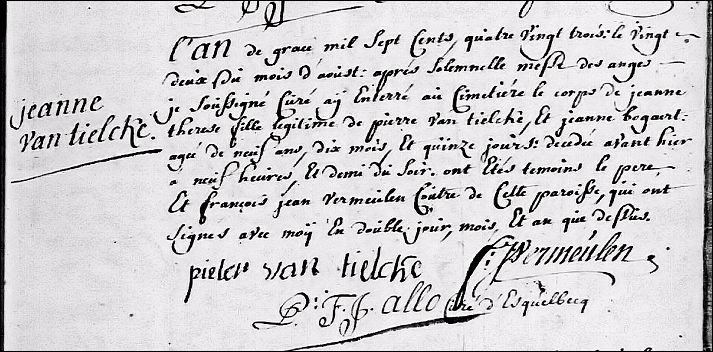 jeanne
van tielcke.
L'an de grace mil Sept Cents, quatre vingt trois: le vingt
deux du mois d'aoust: aprés Solemnelle messe des anges
je Soussigné Curé aÿ Enterré au Cimetiére le corps de jeanne
therese fille legitime de pierre van tielcke, Et jeanne bogaert:
agé de neuf ans, dix mois, Et quinze jours: decedé avant hier
a neuf heures, Et demi du Soir. ont Etés temoins le pere,
Et françois jean vermeulen Coûtre de Cette paroisse, qui ont
Signés avec moÿ En double, jour, mois, Et an que dessus.
pieter van tielcke
f: j: vermeulen
P: F. J. allo Curé d'Esquelbecq